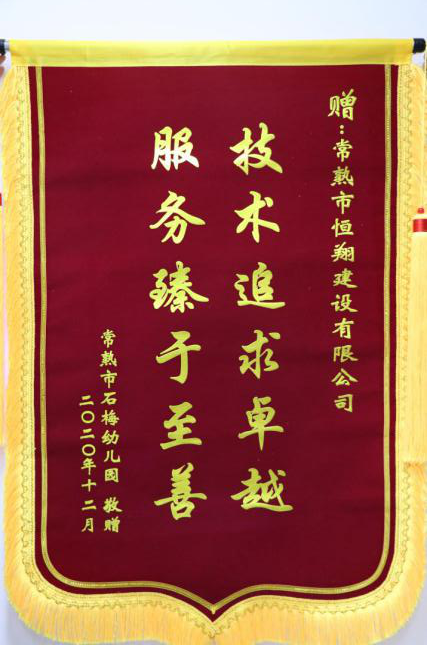 赠：常熟市恒翔建设有限公司
技术追求卓越
服务臻于至善
常熟市石梅幼儿园 敬赠
二〇二〇年十二月